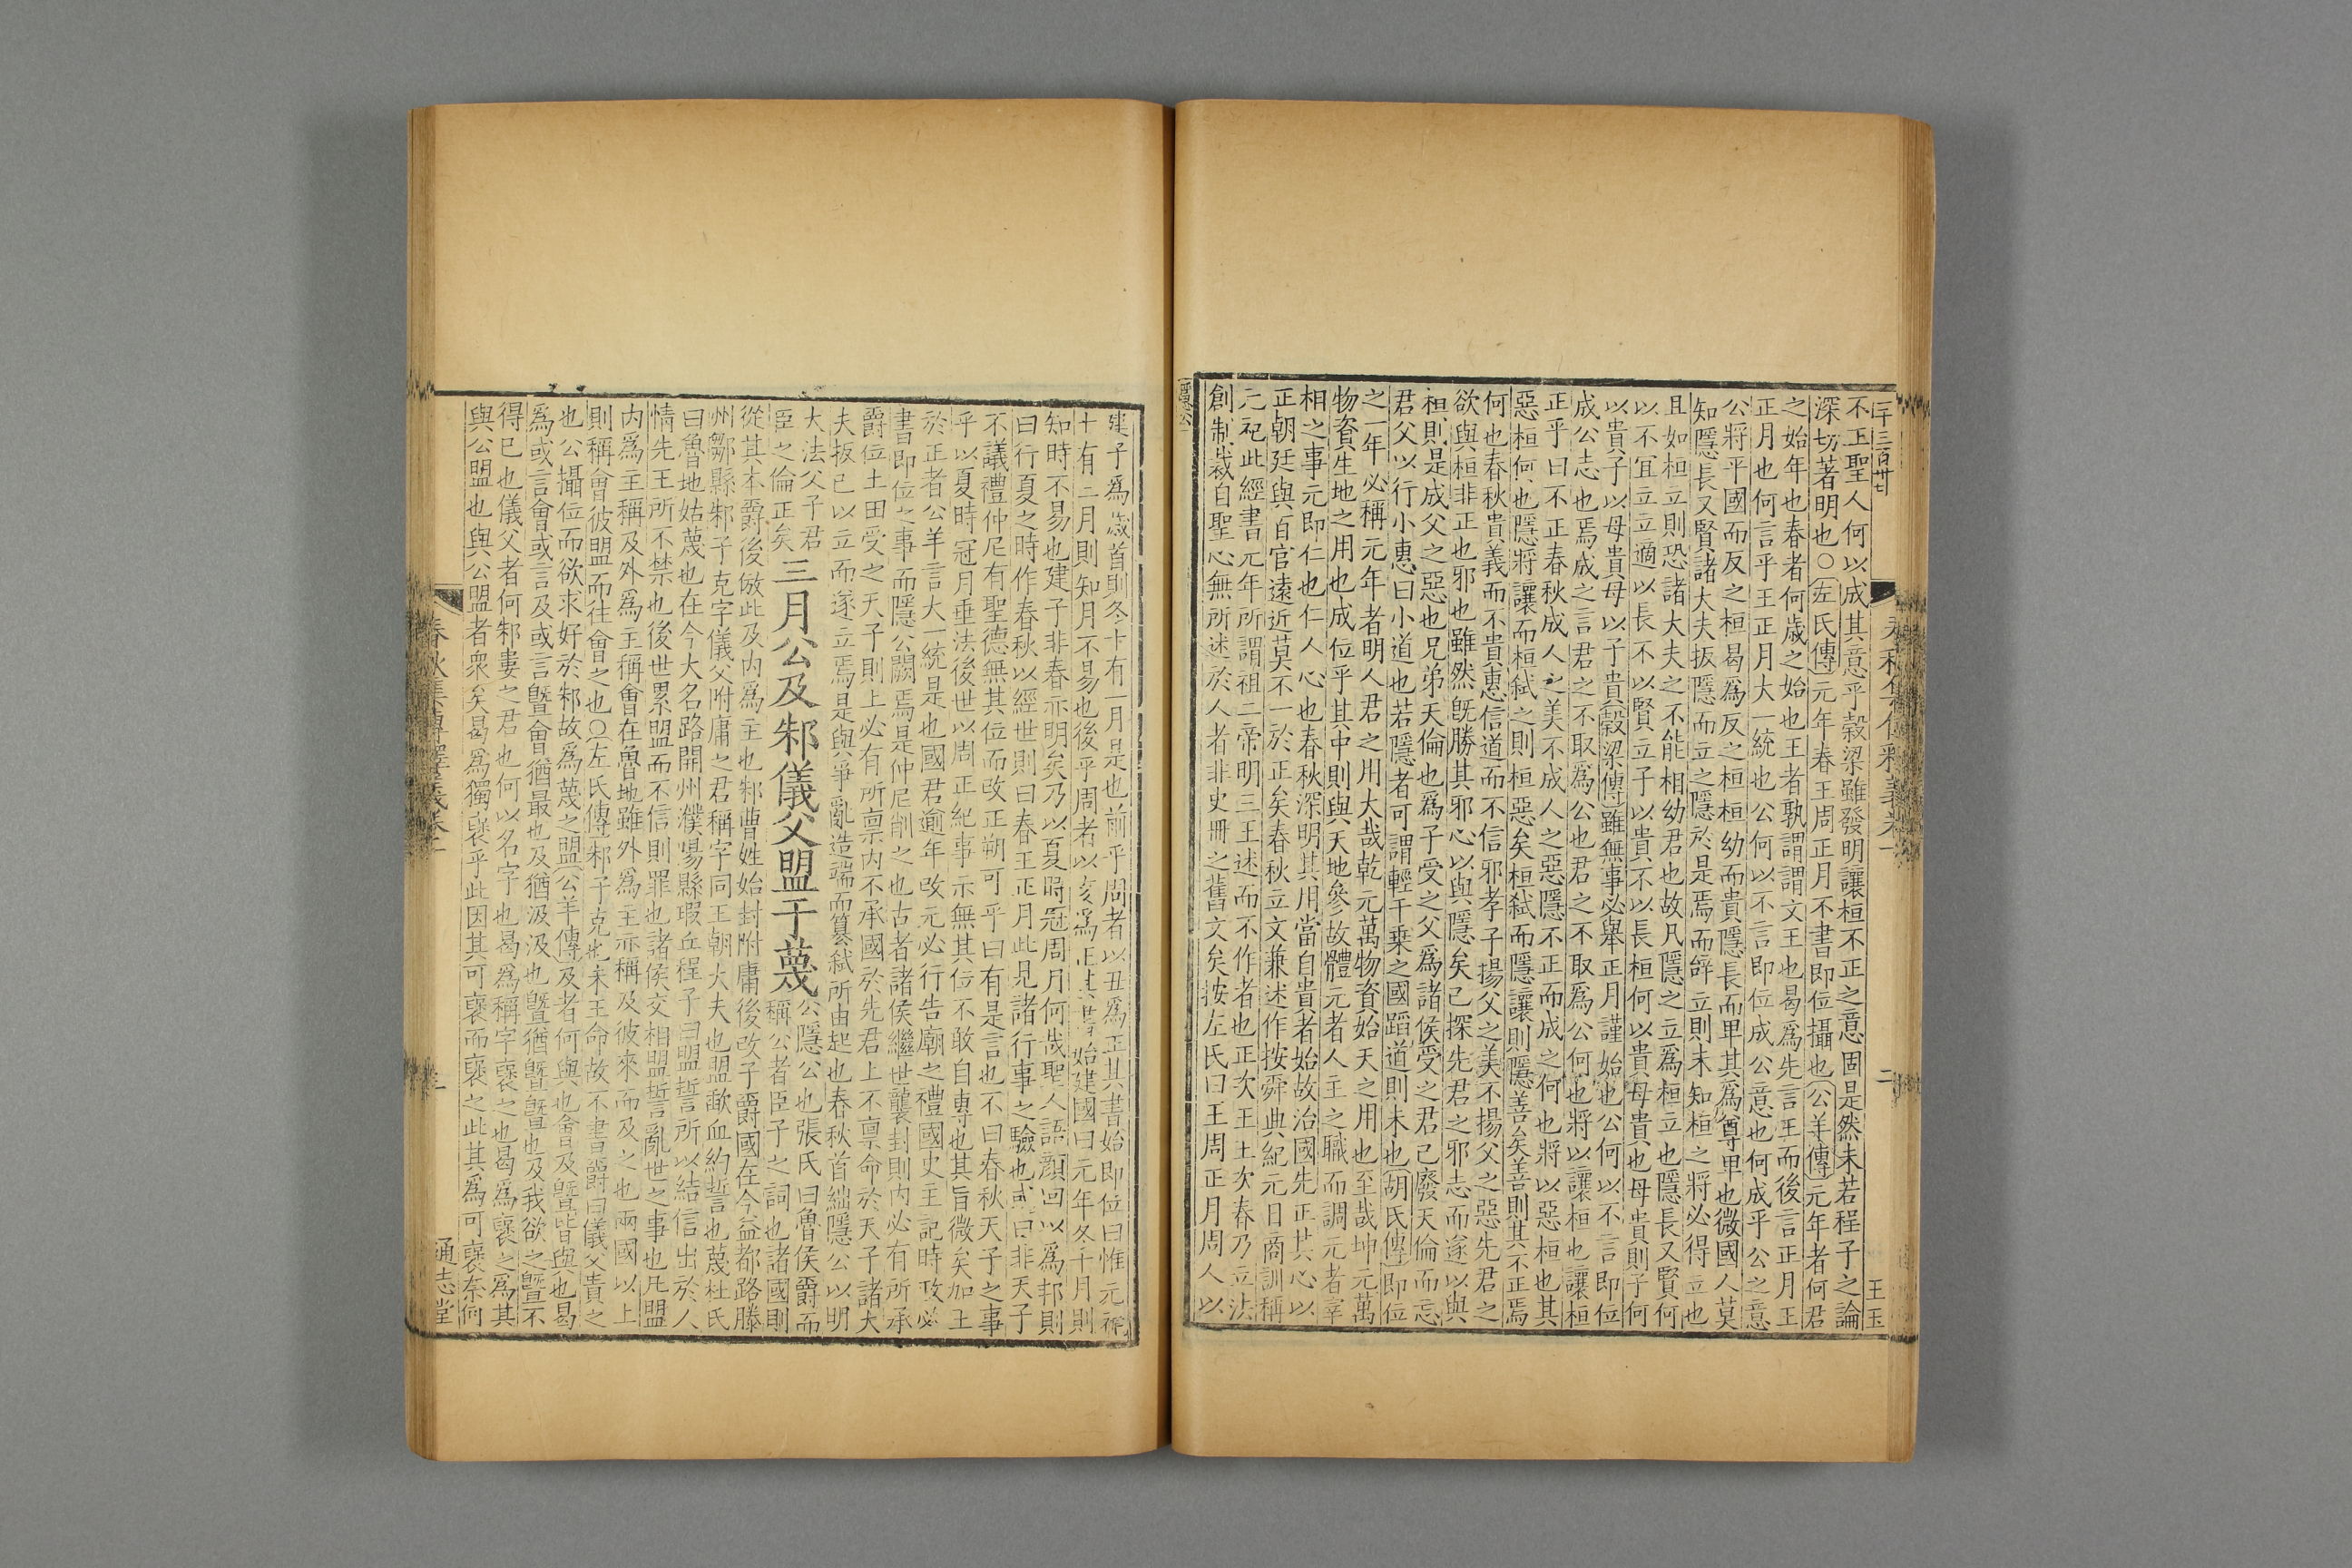 二千三百廿七
春秋集傳釋義卷一
二
王玉
不正聖人何以成其意乎穀梁雖發明讓桓不正之意固是然未若程子之論
深切著明也○左氏傳元年春王周正月不書即位攝也公羊傳元年者何君
之始年也春者何歲之始也王者孰謂謂文王也曷為先言王而後言正月王
正月也何言乎王正月大一統也公何以不言即位成公意也何成乎公之意
公將平國而反之桓曷為反之桓桓幼而貴隱長而卑其為尊卑也微國人莫
知隱長又賢諸大夫扳隱而立之隱於是焉而辭立則未知桓之將必得立也
且如桓立則恐諸大夫之不能相幼君也故凡隱之立為桓立也隱長又賢何
以不宜立立適以長不以賢立子以貴不以長桓何以貴母貴也母貴則子何
以貴子以母貴母以子貴穀梁傳雖無事必舉正月謹始也公何以不言即位
成公志也焉成之言君之不取為公也君之不取為公何也將以讓桓也讓桓
正乎曰不正春秋成人之美不成人之惡隱不正而成之何也將以惡桓也其
惡桓何也隱將讓而桓弒之則桓惡矣桓弒而隱讓則隱善矣善則其不正焉
何也春秋貴義而不貴惠信道而不信邪孝子揚父之美不揚父之惡先君之
欲與桓非正也邪也雖然旣勝其邪心以與隱矣已探先君之邪志而遂以與
桓則是成父之惡也兄弟天倫也為子受之父為諸侯受之君已廢天倫而忘
君父以行小惠曰小道也若隱者可謂輕千乘之國蹈道則未也胡氏傳即位
之一年必稱元年者明人君之用大哉乾元萬物資始天之用也至哉坤元萬
物資生地之用也成位乎其中則與天地參故體元者人主之職而調元者宰
相之事元即仁也仁人心也春秋深明其用當自貴者始故治國先正其心以
正朝廷與百官遠近莫不一於正矣春秋立文兼述作按舜典紀元日商訓稱
元祀此經書元年所謂祖二帝明三王述而不作者也正次王王次春乃立法
創制裁自聖心無所述於人者非史冊之舊文矣按左氏曰王周正月周人以
隱公
建子為歲首則冬十有一月是也前乎周者以丑為正其書始即位曰惟元祀
十有二月則知月不易也後乎周者以亥為正其書始建國曰元年冬十月則
知時不易也建子非春亦明矣乃以夏時冠周月何哉聖人語顏回以為邦則
曰行夏之時作春秋以經世則曰春王正月此見諸行事之驗也或曰非天子
不議禮仲尼有聖德無其位而改正朔可乎曰有是言也不曰春秋天子之事
乎以夏時冠月垂法後世以周正紀事示無其位不敢自專也其旨微矣加王
於正者公羊言大一統是也國君逾年改元必行告廟之禮國史主記時政必
書即位之事而隱公闕焉是仲尼削之也古者諸侯繼世襲封則內必有所承
爵位土田受之天子則上必有所禀內不承國於先君上不禀命於天子諸大
夫扳已以立而遂立焉是與爭亂造端而篡弒所由起也春秋首絀隱公以明
大法父子君
臣之倫正矣
三月公及邾儀父盟于蔑
公隱公也張氏曰魯侯爵而
稱公者臣子之詞也諸國則
從其本爵後倣此及內為主也邾曹姓始封附庸後改子爵國在今益都路滕
州鄒縣邾子克字儀父附庸之君稱字同王朝大夫也盟歃血約誓也蔑杜氏
曰魯地姑蔑也在今大名路開州濮陽縣瑕丘程子曰盟誓所以結信出於人
情先王所不禁也後世累盟而不信則罪也諸侯交相盟誓亂世之事也凡盟
內為主稱及外為主稱會在魯地雖外為主亦稱及彼來而及之也兩國以上
則稱會彼盟而往會之也○左氏傳邾子克也未王命故不書爵曰儀父貴之
也公攝位而欲求好於邾故為蔑之盟公羊傳及者何與也會及曁皆與也曷
為或言會或言及或言曁會猶最也及猶汲汲也曁猶曁曁也及我欲之曁不
得已也儀父者何邾婁之君也何以名字也曷為稱字襃之也曷為襃之為其
與公盟也與公盟者衆矣曷為獨襃乎此因其可襃而襃之此其為可襃奈何
春秋集傳釋義卷一
三
通志堂